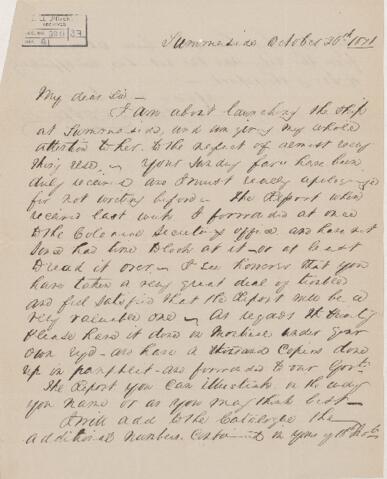 Summerside October 20th 1871
My dear Sir
I am about launching the ship
at Summerside, and am giving my whole
attention to her. to the neglect of almost every
thing else – your Sunday favr have been
duly received and I must really apologize
for not writing before – The Report when
received last week I forwarded at once
to the Colonial Secretary office and have not
since had time to look at it – or at least
to read it over – I see however that you
have taken a very great deal of trouble
and feel satisfied that the Report will be a
very valuable one – As regards the
Please have it done in Montreal under your
own Eye – and have a thousand Copies done
up in pamphlet – and forwarded to our Govt.
The Report you can illustrate in the way
you name or as you may think best –
I will add to the Catalogue the
additional numbers contained in yours of